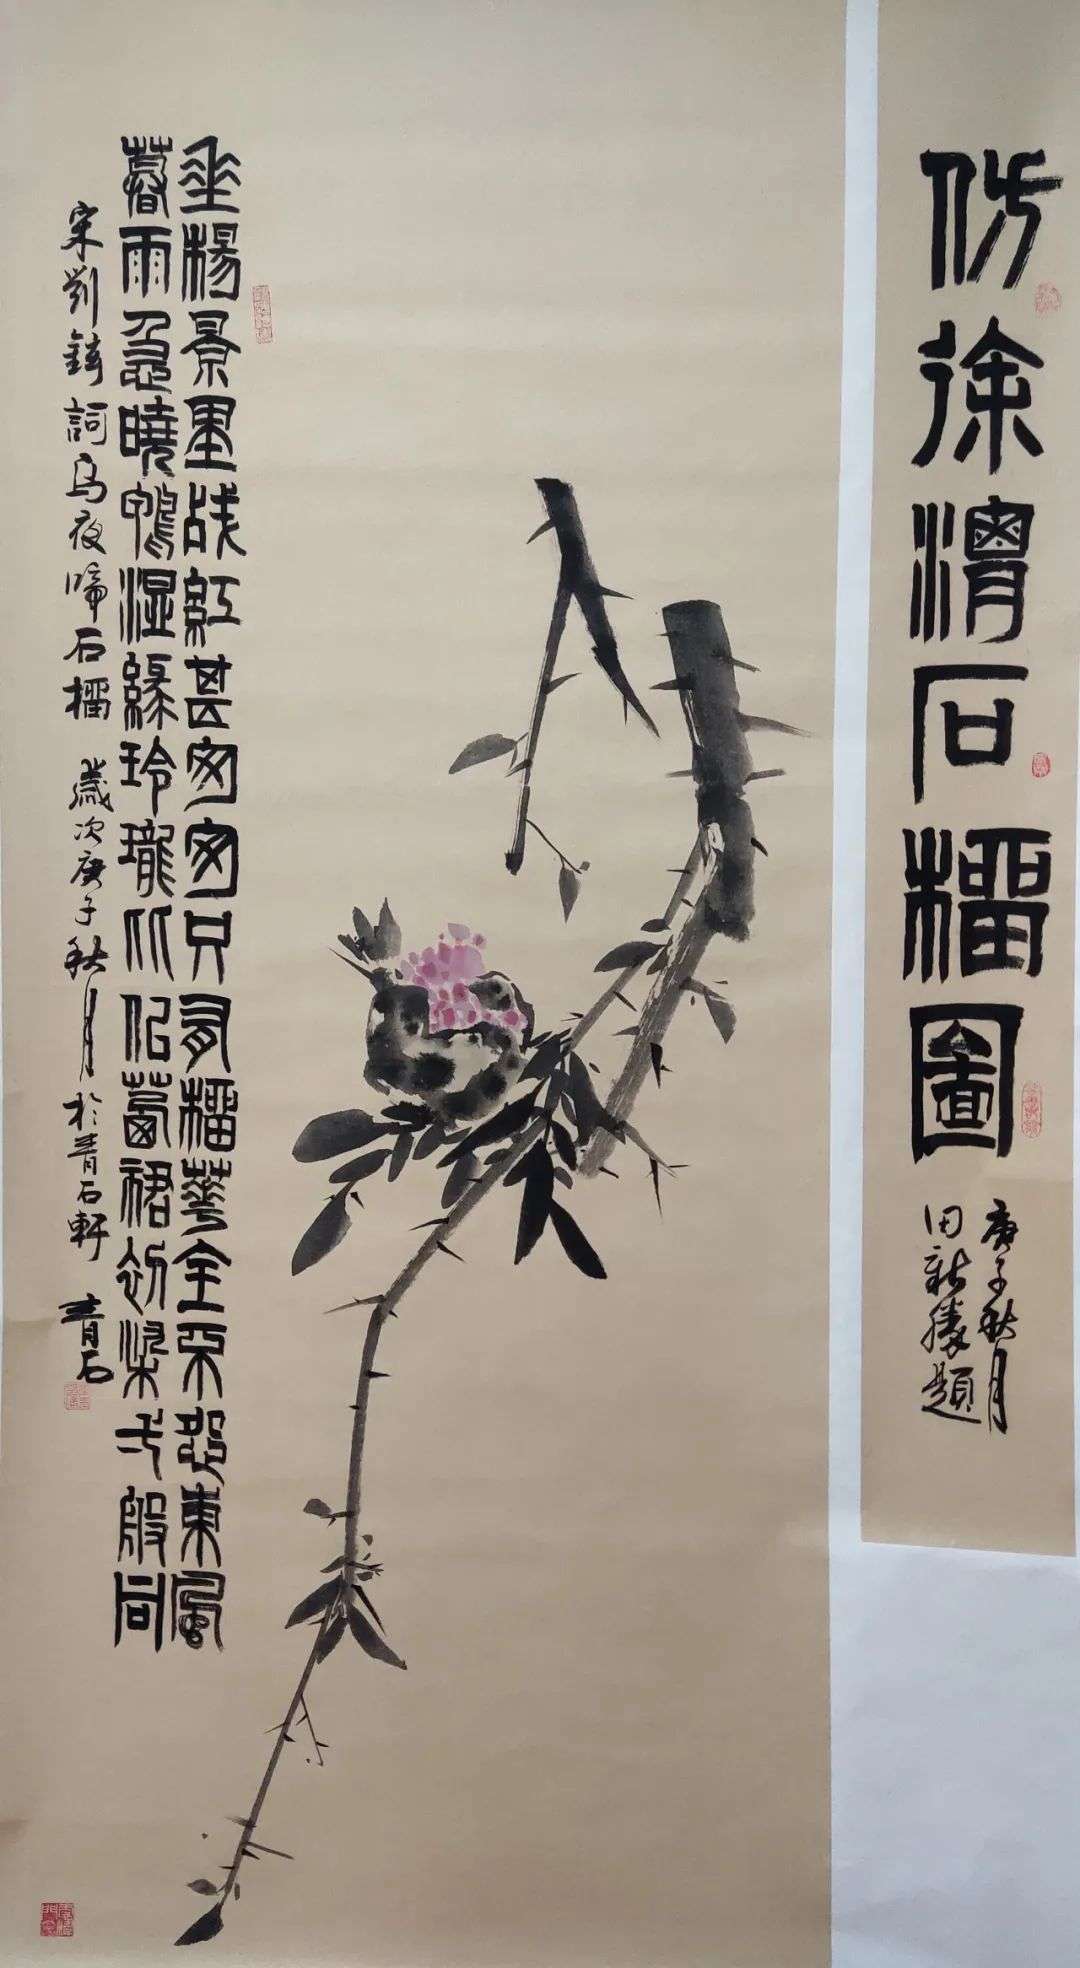 仿徐渭石榴圖
庚子秋月
田新勝題
垂楊景里残紅甚匆匆只有榴華全不怨東風
暮雨急曉鴉溼綠玲瓏比佀茜裙初染弌般同
宋劉鑄詞烏夜啼石榴 歲次庚子秋月於青石軒 青石